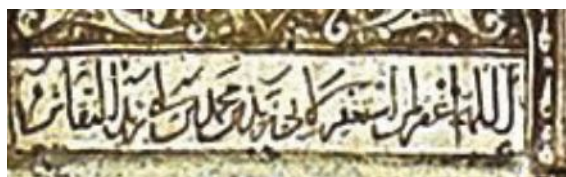 اللهم اغفر لمن استغفر لابى زيد بن محمد بن ابى زيد النقاش